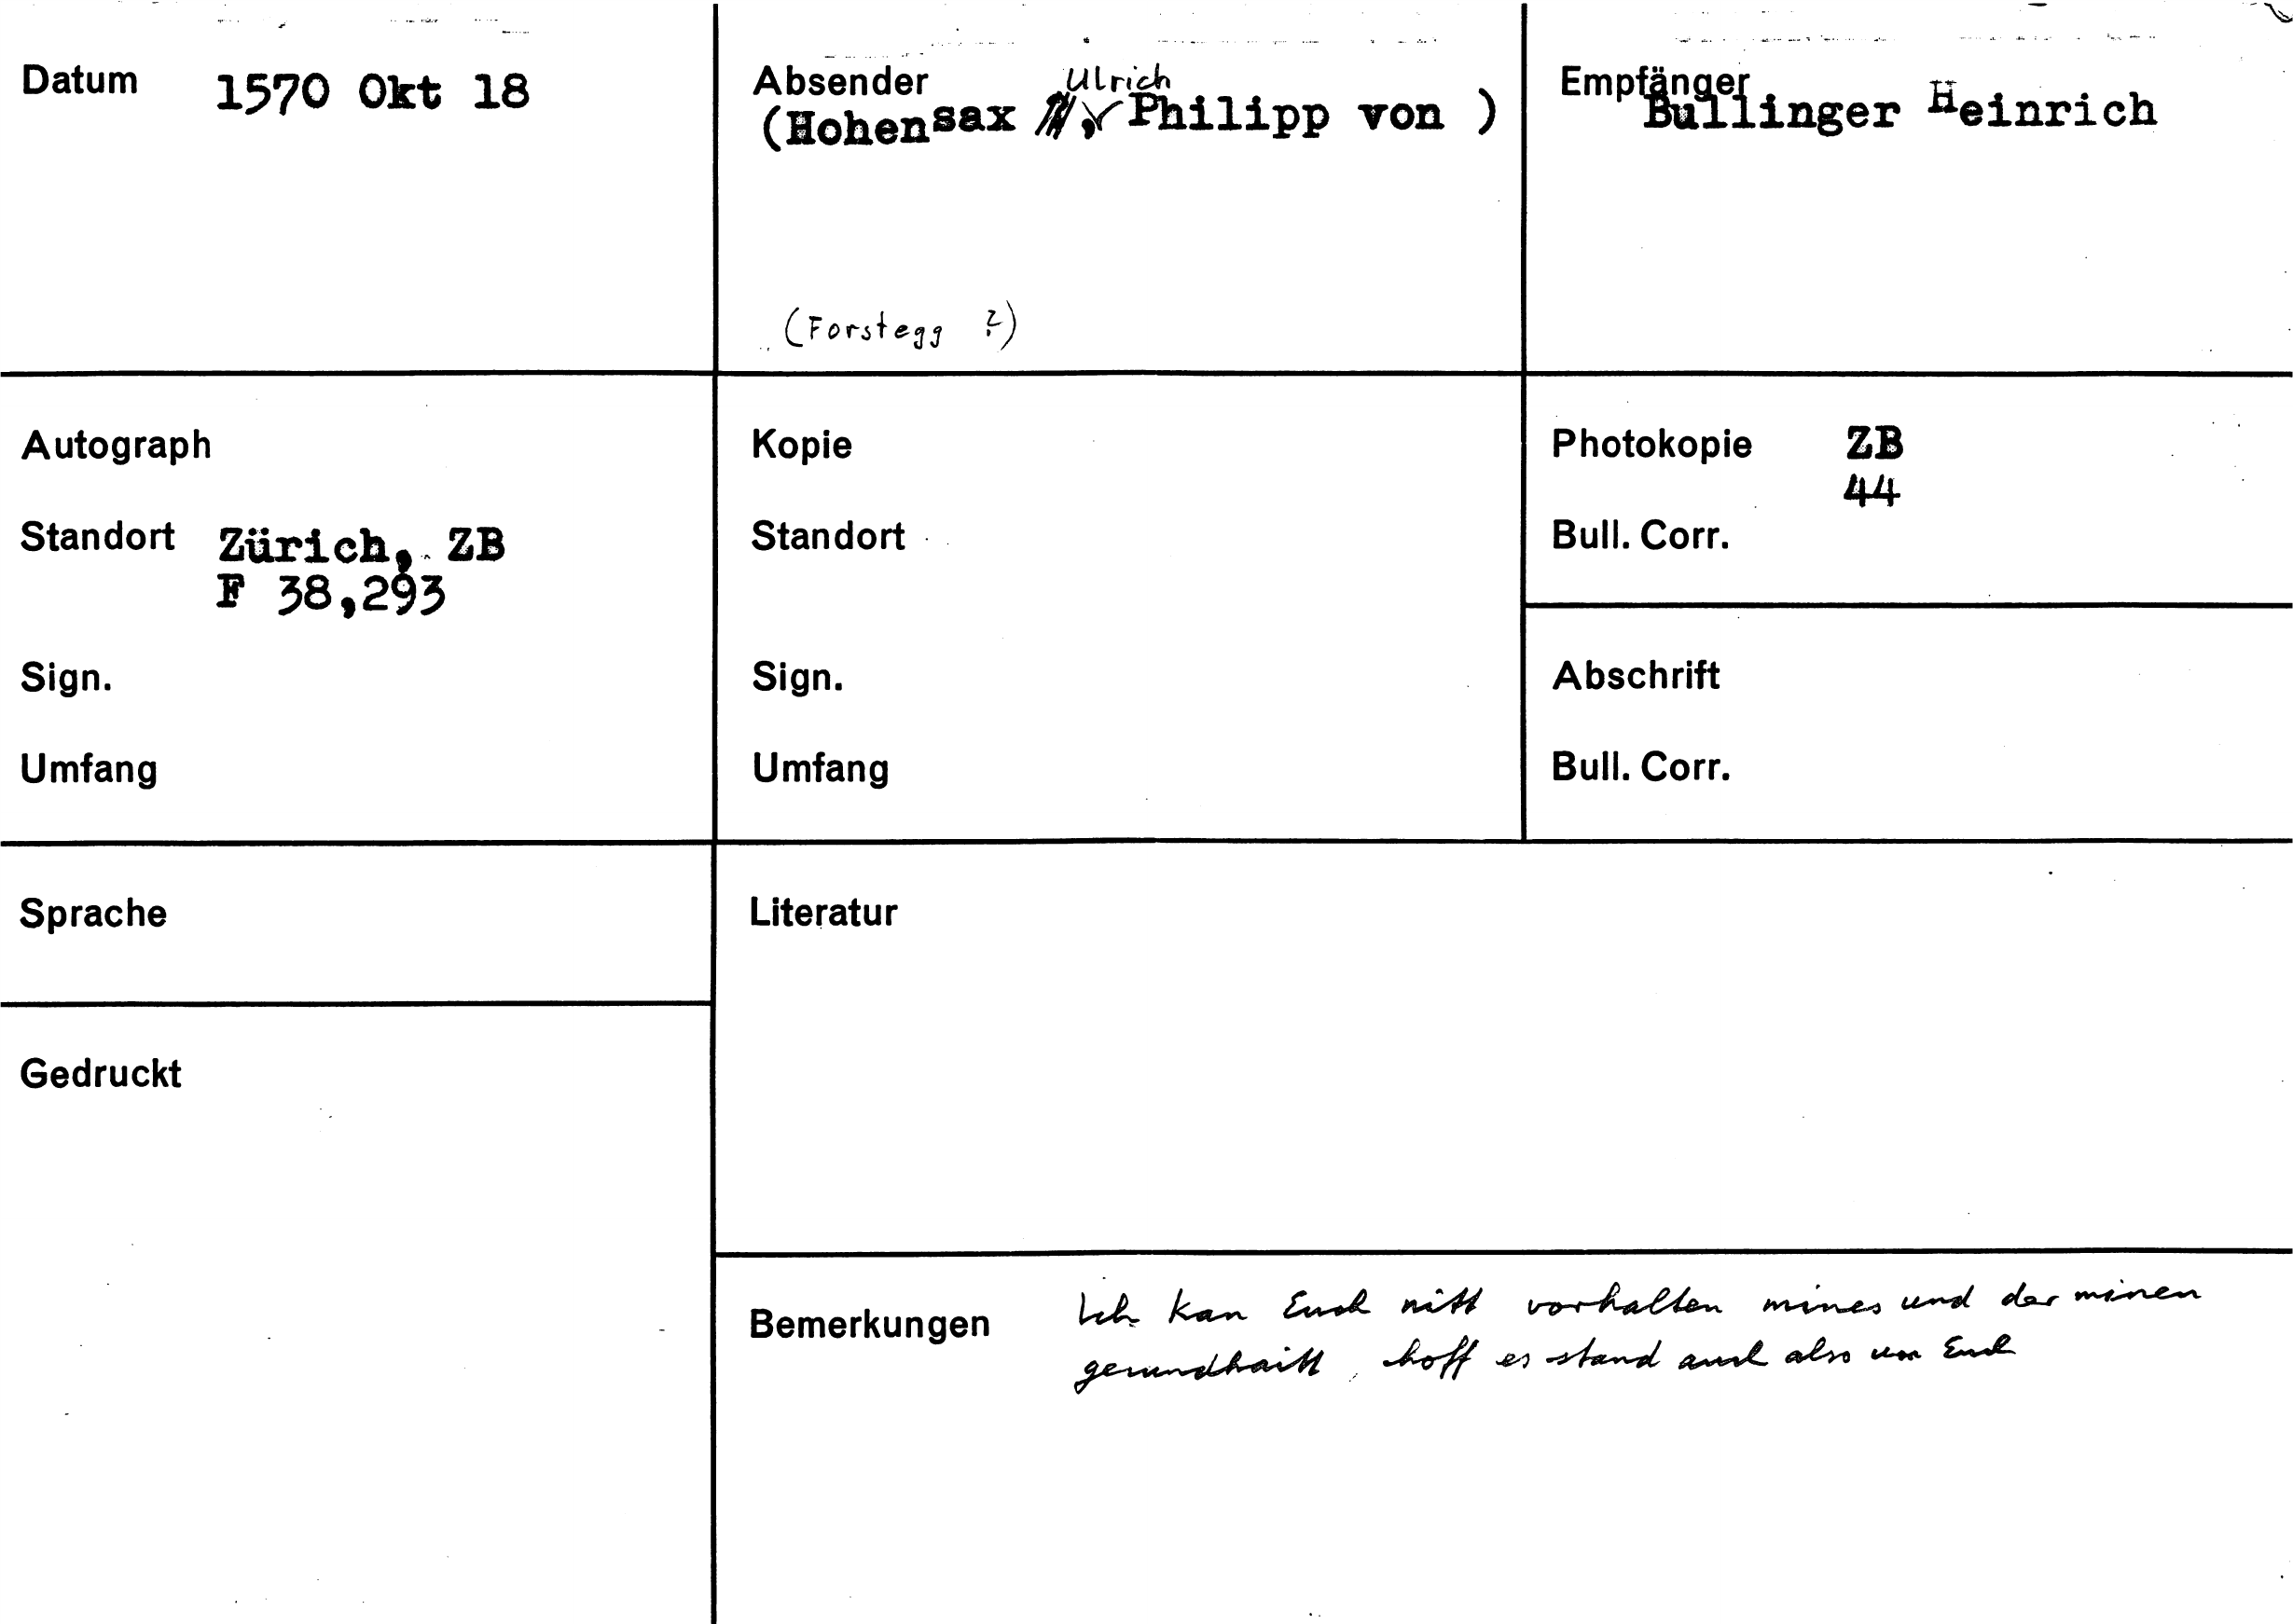 Datum 1570 Okt 18
Absender
(Hohensax , Ulrich Philipp von )
(Forstegg ?)
Empfänger
Bullinger Heinrich
Autograph
Standort Zürich, ZB
F 38,293
Sign.
Umfang
Kopie
Standort
Sign.
Umfang
Photokopie ZB
44
Bull. Corr.
Abschrift
Bull. Corr.
Sprache
Gedruckt
Literatur
Bemerkungen Ich kan Euch nitt vorhalten mines und der minen
gesundhaitt, hoff es stand auch also um Euch